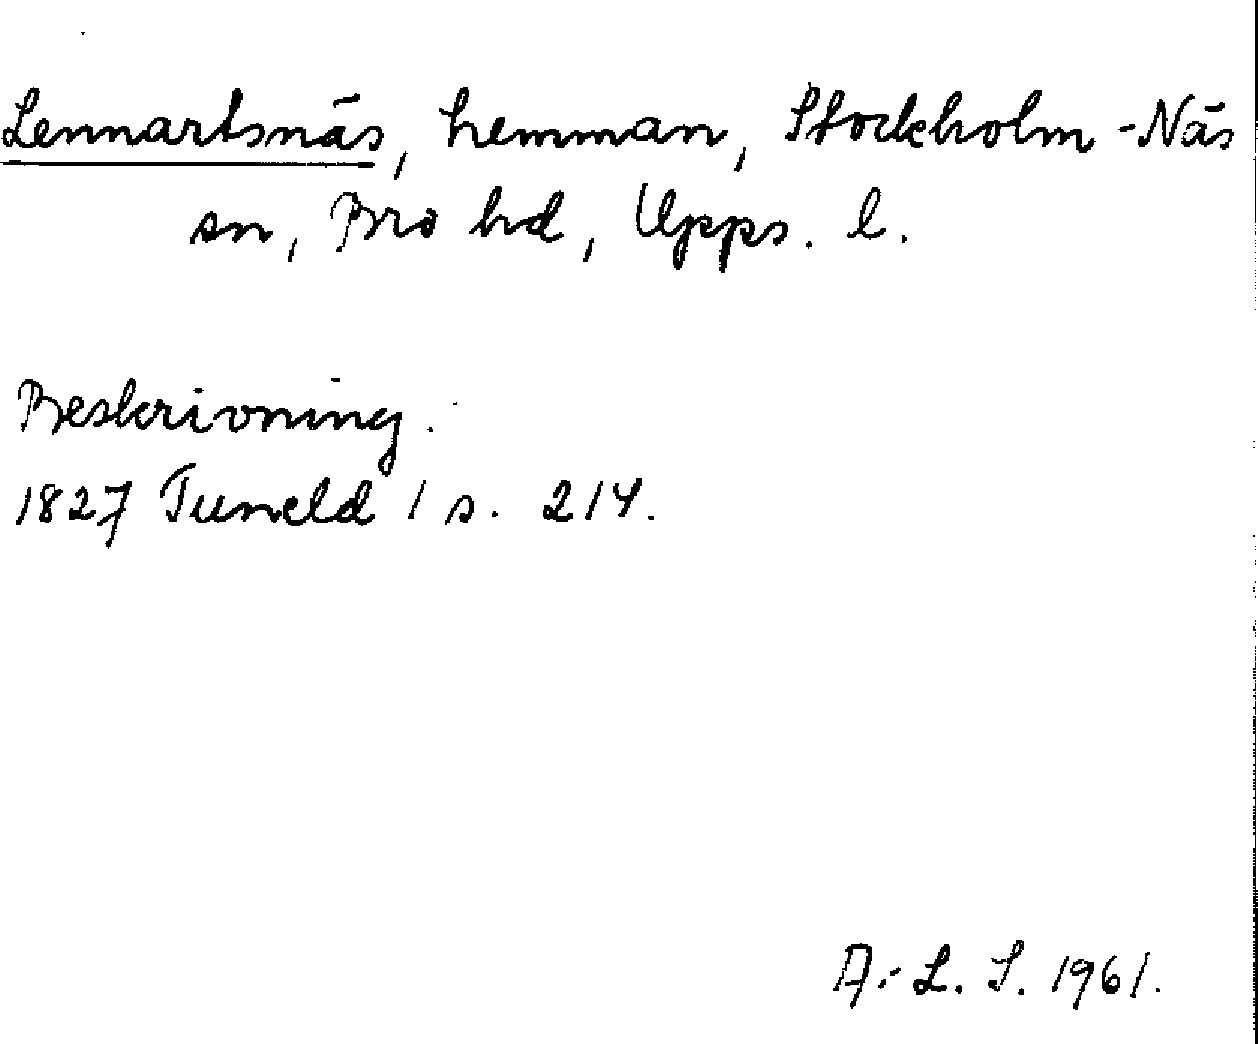 Lennartsnäs, hemman, Stockholm-Näs
sn, Bro hd, Upps. l.
Beskrivning.
1827 Tuneld 1 s. 214.
A.-L. S. 1961.